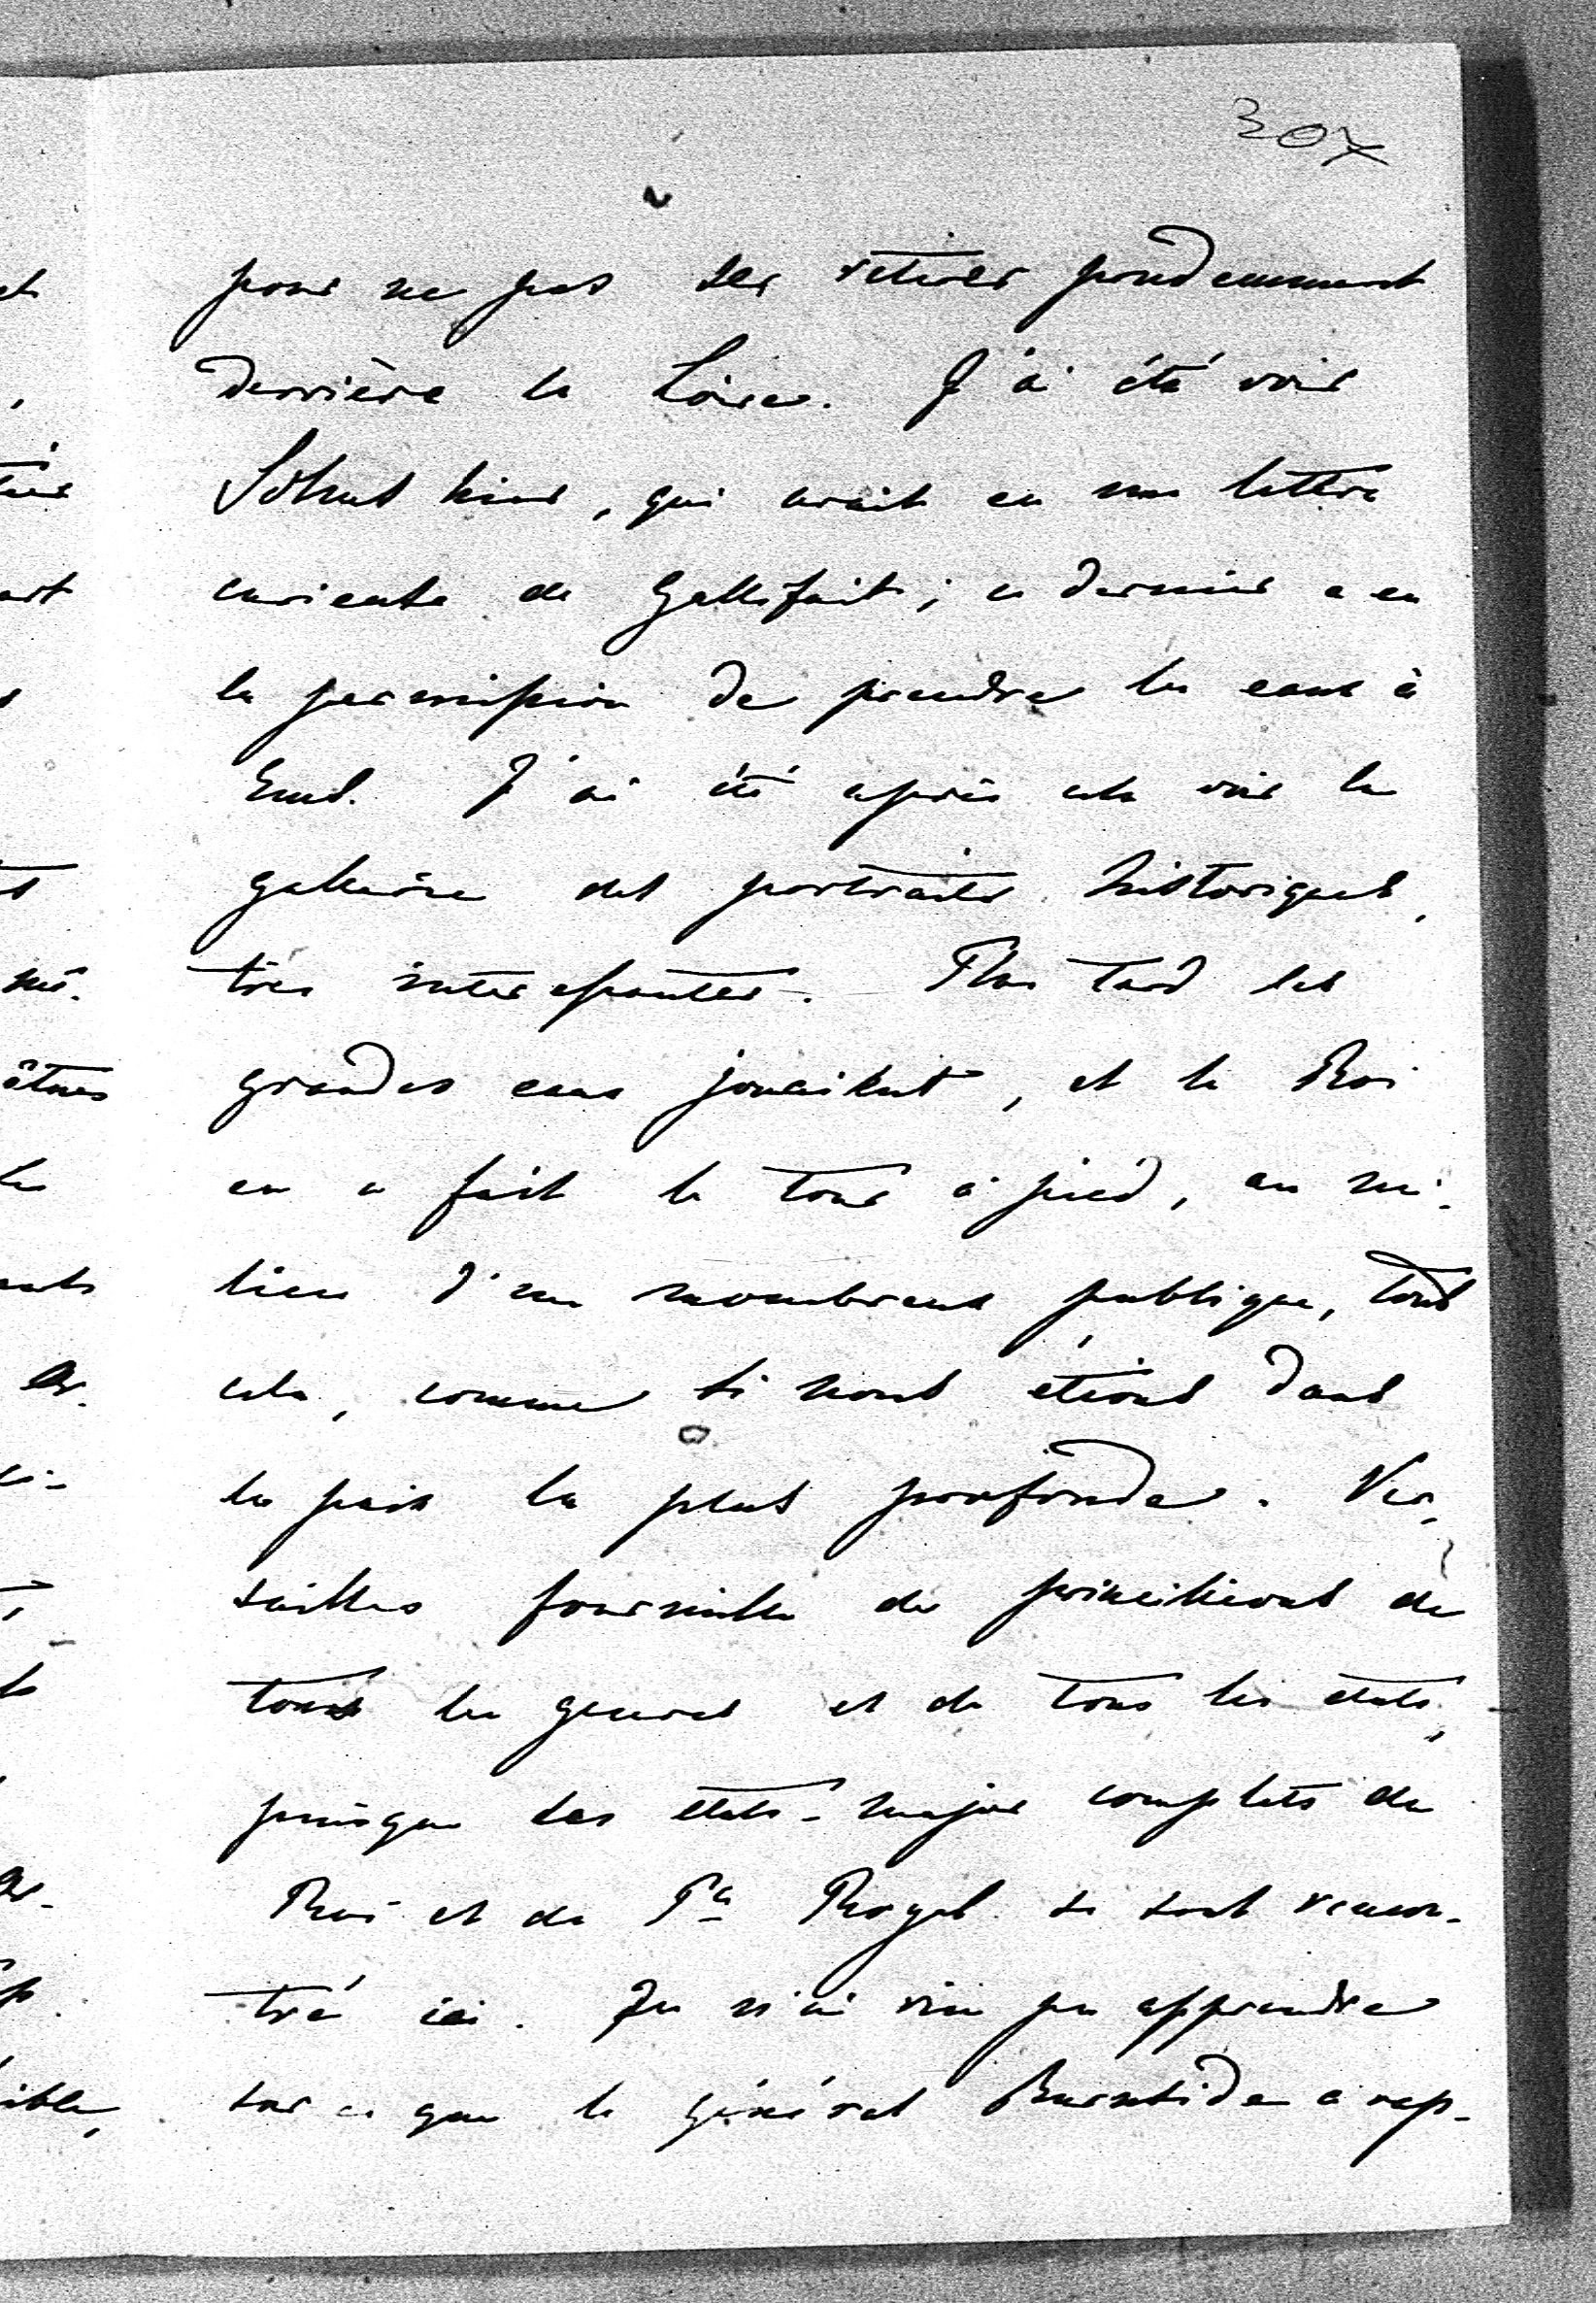 307
pour ne pas se retirer prudemment
derrière la Loire. J'ai été voir
hier, qui avait eu une lettre
curieuse de Gallifait; ce dernier a eu
la permission de prendre les eaux à
Ems. J'ai été après cela voir la
gallerie des portraits historiques,
très interessantes. Plus tard les
grandes eaux jouaient, et le Roi
en a fait le tour à pied, au mi-
lieu d'un nombreux publique, tout
cela, comme si nous étions dans
la paix la plus profonde. Ver-
sailles fourmille de princillions de
tous les genres et de tous les états,
puisque les états-major complets du
Roi et du Pce Royal se sont rencon-
tré ici. Je n'ai rien pu apprendre
sur ce que le général Burnside a rap-